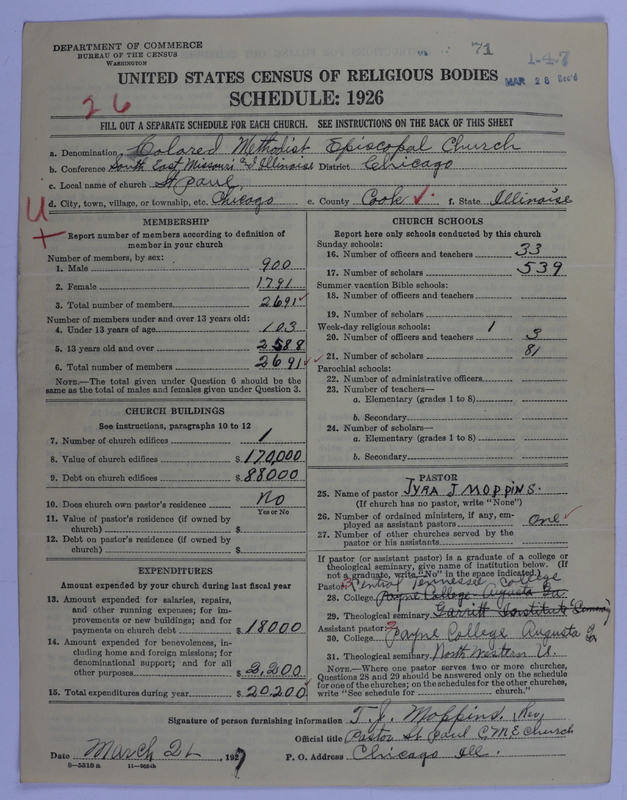 DEPARTMENT OF COMMERCE
BUREAU OF THE CENSUS
WASHINGTON
71
1-4-7
MAR 28 Rec'd
UNITED STATES CENSUS OF RELIGIOUS BODIES
SCHEDULE: 1926
26
FILL OUT A SEPARATE SCHEDULE FOR EACH CHURCH. SEE INSTRUCTIONS ON THE BACK OF THIS SHEET
a. Denomination Colored Methodist Episcopal Church
b. Conference South East Missouri & Illinaise District Chicago
c. Local name of church St Paul
d. City, town, village, or township, etc. Chicago e. County Cook ✓ f. State Illinoise
MEMBERSHIP
Report number of members according to definition of
member in your church
Number of members, by sex:
1. Male 900
2. Female 1791
3. Total number of members 2691 ✓
Number of members under and over 13 years old:
4. Under 13 years of age 103
5. 13 years old and over 2588
6. Total number of members 2691 ✓✓
NOTE.—The total given under Question 6 should be the
same as the total of males and females given under Question 3.
CHURCH BUILDINGS
See instructions, paragraphs 10 to 12
7. Number of church edifices 1
8. Value of church edifices $ 170,000
9. Debt on church edifices $ 88000
10. Does church own pastor's residence No
Yes or No
11. Value of pastor's residence (if owned by
church) $
12. Debt on pastor's residence (if owned by
church) $
EXPENDITURES
Amount expended by your church during last fiscal year
13. Amount expended for salaries, repairs,
and other running expenses; for im-
provements or new buildings; and for
payments on church debt $ 18000
14. Amount expended for benevolences, in-
cluding home and foreign missions; for
denominational support; and for all
other purposes $ 2,200
15. Total expenditures during year $ 20,200 ✓
CHURCH SCHOOLS
Report here only schools conducted by this church
Sunday schools:
16. Number of officers and teachers 33
17. Number of scholars 539
Summer vacation Bible schools:
18. Number of officers and teachers
19. Number of scholars
Week-day religious schools: 1
20. Number of officers and teachers 3
21. Number of scholars 81
Parochial schools:
22. Number of administrative officers
23. Number of teachers—
a. Elementary (grades 1 to 8)
b. Secondary
24. Number of scholars—
a. Elementary (grades 1 to 8)
b. Secondary
PASTOR
25. Name of pastor Tyra J Moppins.
(If church has no pastor, write "None")
26. Number of ordained ministers, if any, em-
ployed as assistant pastors one ✓
27. Number of other churches served by the
pastor or his assistants
If pastor (or assistant pastor) is a graduate of a college or
theological seminary, give name of institution below. (If
not a graduate, write "No" in the space indicated.)
Pastor: Central Tennessee College
28. College Payne College Augusta Ga
29. Theological seminary Garritt Institute
Assistant pastor:
30. College Payne College Augusta Ga
31. Theological seminary North Western U.
NOTE.—Where one pastor serves two or more churches,
Questions 28 and 29 should be answered only on the schedule
for one of the churches; on the schedules for the other churches,
write "See schedule for church."
Signature of person furnishing information T. J. Moppins, Rev
Official title Pastor St Paul C.M.E church
Date March 21, 1927 P. O. Address Chicago Ill.
8—5318 a